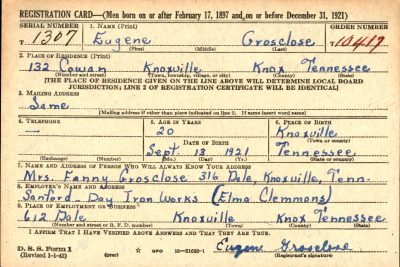 REGISTRATION CARD—(Men born on or after February 17, 1897 and on or before December 31, 1921)
SERIAL NUMBER 1. NAME (Print) ORDER NUMBER
T 1307 Eugene Grosclose T 10417
(First) (Middle) (Last)
2. PLACE OF RESIDENCE (Print)
132 Cowan Knoxville Knox Tennessee
(Number and street) (Town, township, village, or city) (County) (State)
[THE PLACE OF RESIDENCE GIVEN ON THE LINE ABOVE WILL DETERMINE LOCAL BOARD
JURISDICTION; LINE 2 OF REGISTRATION CERTIFICATE WILL BE IDENTICAL]
3. MAILING ADDRESS
Same
[Mailing address if other than place indicated on line 2. If same insert word same]
4. TELEPHONE 5. AGE IN YEARS 6. PLACE OF BIRTH
— 20 Knoxville
DATE OF BIRTH (Town or county)
Sept. 13 1921 Tennessee
(Exchange) (Number) (Mo.) (Day) (Yr.) (State or country)
7. NAME AND ADDRESS OF PERSON WHO WILL ALWAYS KNOW YOUR ADDRESS
Mrs. Fanny Grosclose 316 Dale, Knoxville, Tenn.
8. EMPLOYER'S NAME AND ADDRESS
Sanford-Day Iron Works (Elma Clemmons)
9. PLACE OF EMPLOYMENT OR BUSINESS
612 Dale Knoxville Knox Tennessee
(Number and street or R. F. D. number) (Town) (County) (State)
I AFFIRM THAT I HAVE VERIFIED ABOVE ANSWERS AND THAT THEY ARE TRUE.
D. S. S. Form 1 GPO 16—21630-1 Eugene Grosclose
(Revised 1-1-42) (Registrant's signature)